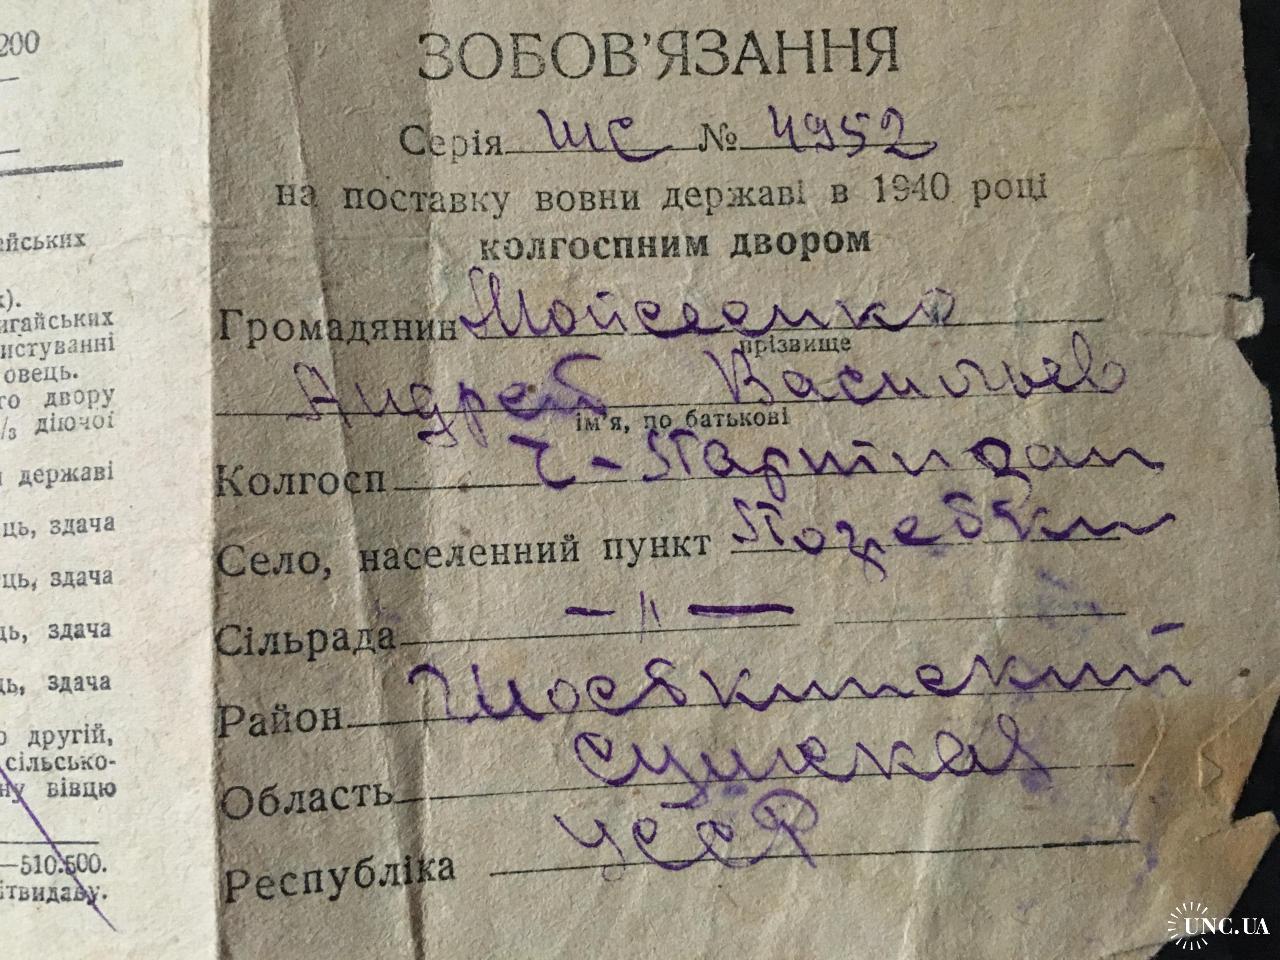 200
ЗОБОВ'ЯЗАННЯ
Серія ШС № 4952
на поставку вовни державі в 1940 році
колгоспним двором
Громадянин Мойсеенко
прізвище
Андрей Васильев
ім'я, по батькові
Колгосп Ч-Партизан
Село, населенний пункт
Сільрада —〃—
Район Шосткинский
Область Сумская
Республіка УССР
ийських
).
игайських
истуванні
овець.
го двору
/3 діючої
державі
ць, здача
ць, здача
ць, здача
ь, здача
о другій,
сільсько-
ну вівцю
—510.500.
ітвидаву.
UNC.UA